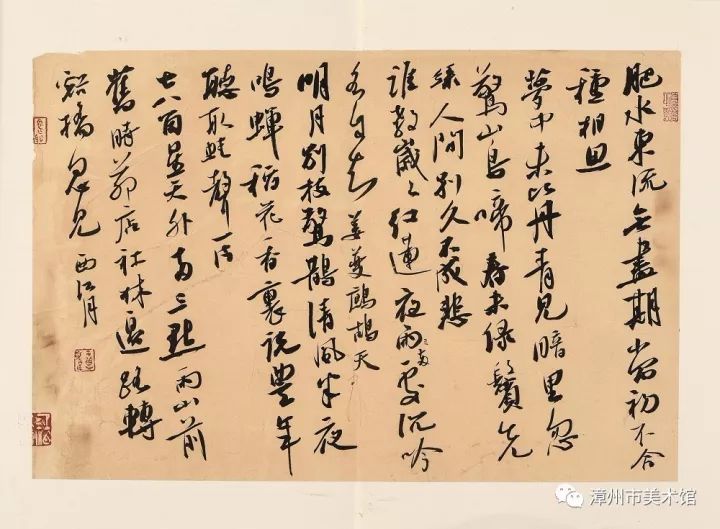 肥水東流無盡期當初不合
種相思
夢中未比丹青見暗里忽
驚山鳥啼春未綠鬢先
絲人間別久不成悲
誰教歲々紅蓮夜兩處沉吟
各自知 姜夔鷓鴣天
明月別枝驚鵲清風半夜
鳴蟬稻花香裏說豐年
聽取蛙聲一片
七八個星天外兩三點雨山前
舊時茅店社林邊路轉
谿橋忽見 西江月
漳州市美术馆